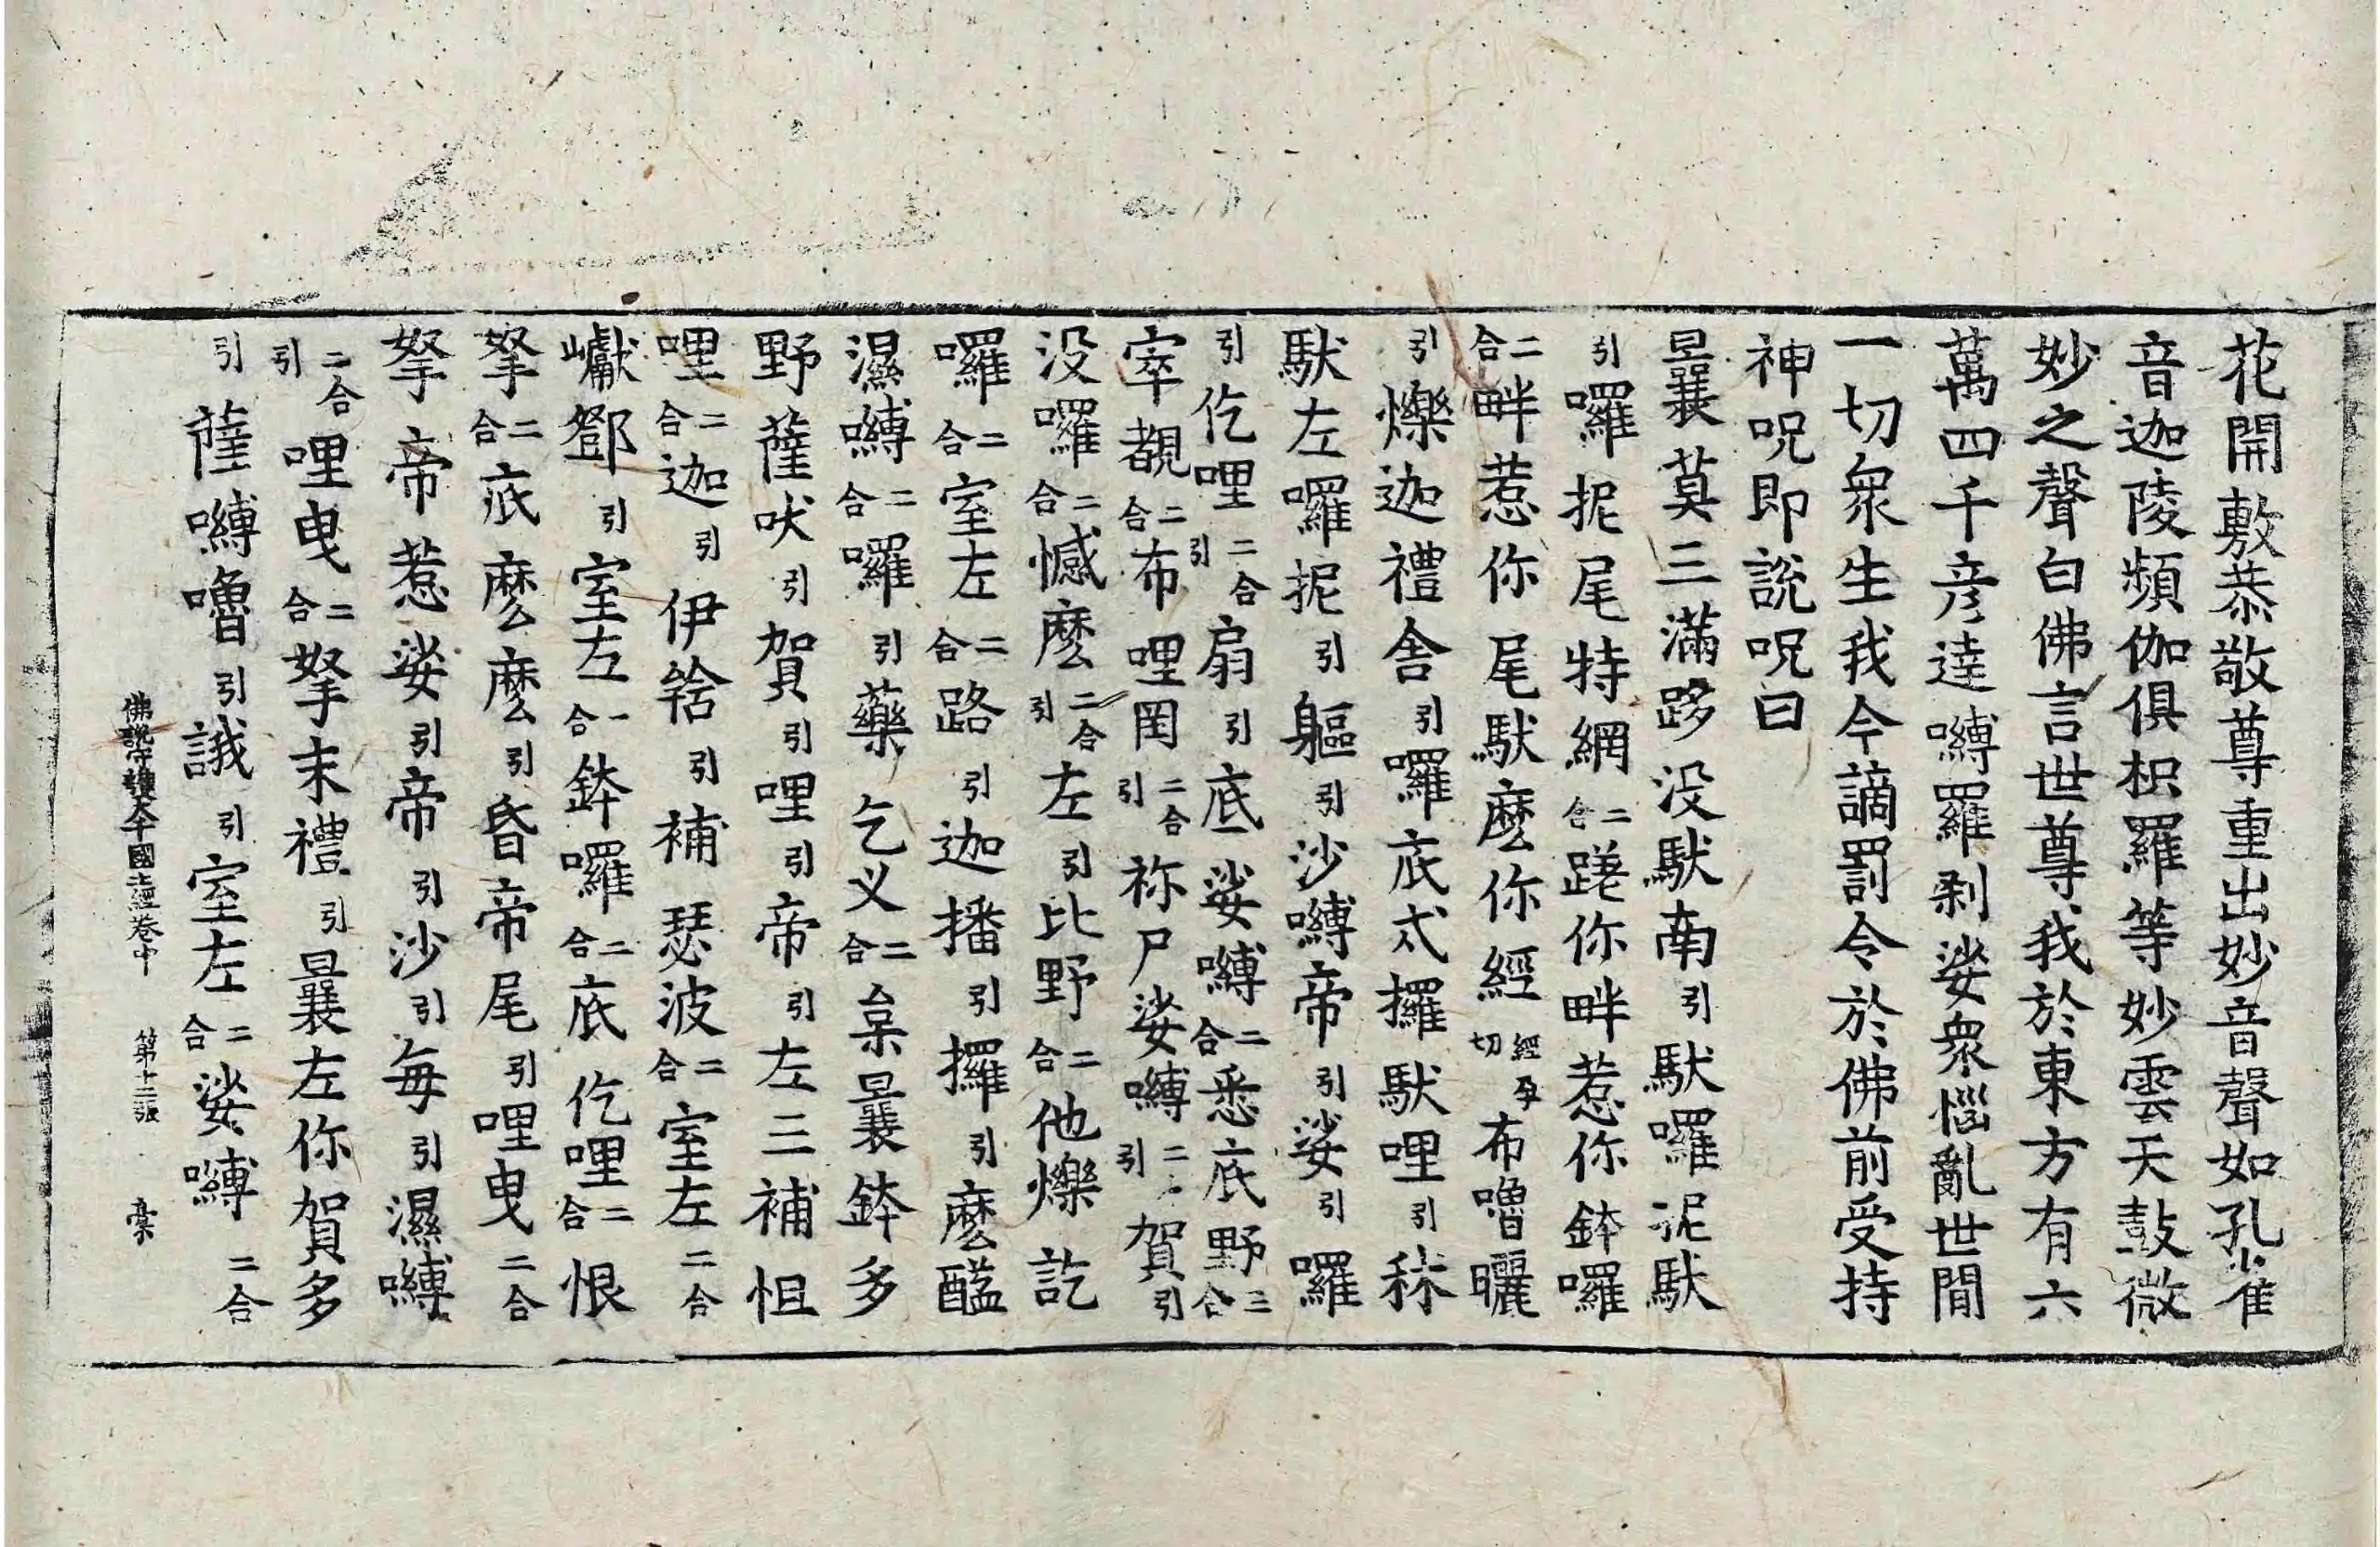 花開敷恭敬尊重出妙音聲如孔雀
音迦陵頻伽俱枳羅等妙雲天鼓微
妙之聲白佛言世尊我於東方有六
萬四千彦達嚩羅剎娑衆惱亂世間
一切衆生我今謫罰令於佛前受持
神呪即説呪曰
曩莫三滿跢没馱南引馱囉抳馱
引囉抳尾特網二合蹉你畔惹你鉢囉
二合畔惹你尾馱麽你經經孕切布嚕曬
引爍迦禮舍引囉底犮攞馱哩引秣
馱左囉抳引軀引沙嚩帝引娑引囉
引仡哩二合引扇引底娑嚩二合悉底野二合
窣覩二合布哩罔二合引祢尸娑嚩二合引賀引
没囉二合憾麽二合引左引比野二合他爍訖
囉二合室左二合路引迦播引攞引麽醯
濕嚩二合囉引藥乞叉二合枲曩鉢多
野薩吠引賀引哩引帝引左三補怛
哩二合迦引伊銛引補瑟波二合室左二合
巘鄧引室左二合鉢囉二合底仡哩二合恨
拏二合底麽麽引昏帝尾引哩曳二合
拏帝惹娑引帝引沙引每引濕嚩
二合引哩曳二合拏末禮引曩左你賀多
引薩嚩嚕引誐引室左二合娑嚩二合
佛説守護大千國土經卷中 第十三張 槀